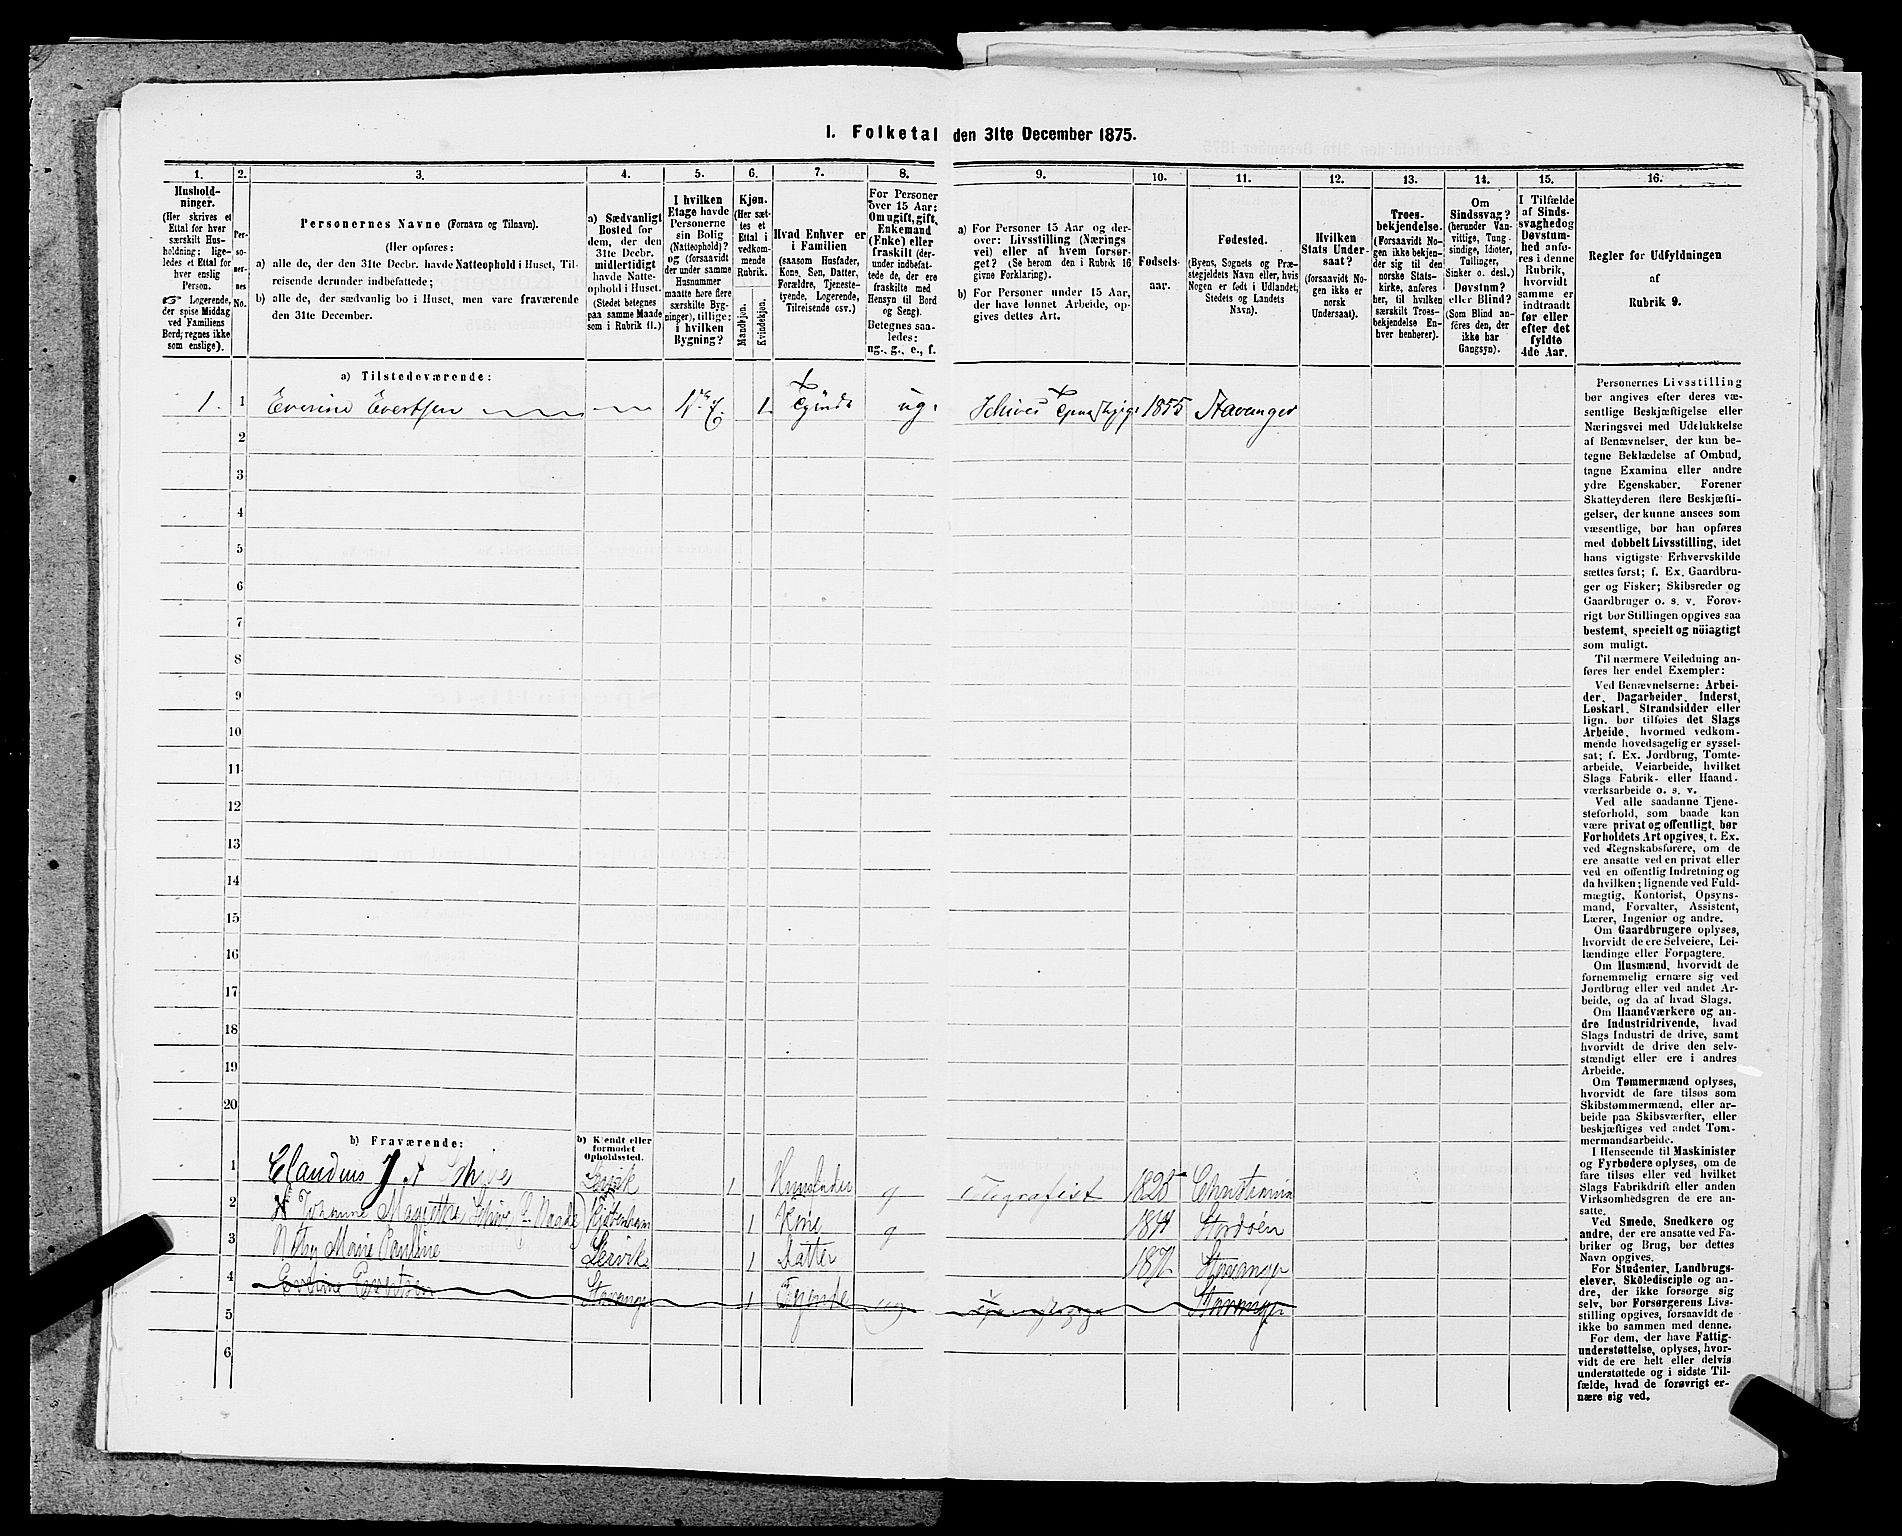 I. Folketal den 31te December 1875.
1.
Hushold-
ninger.
(Her skrives et
Ettal for hver
særskilt Hus-
holdning; lige-
ledes et Ettal for
hver enslig
Person.
☞ Logerende,
der spise Middag
ved Familiens
Bord, regnes ikke
som enslige).
2.
Per-
so-
ner-
nes
No.
3.
Personernes Navne (Fornavn og Tilnavn).
(Her opføres:
a) alle de, der den 31te Decbr. havde Natteophold i Huset, Til-
reisende derunder indbefattede;
b) alle de, der sædvanlig bo i Huset, men vare fraværende
den 31te December.
4.
a) Sædvanligt
Bosted for
dem, der den
31te Decbr.
midlertidigt
havde Natte-
ophold i Huset.
(Stedet betegnes
paa samme Maade
som i Rubrik 11.)
5.
I hvilken
Etage havde
Personerne
sin Bolig
(Natteophold)?
og (forsaavidt
der under samme
Husnummer
maatte høre flere
særskilte Byg-
ninger), tillige:
i hvilken
Bygning?
6.
Kjøn.
(Her sæt-
tes et
Ettal i
vedkom-
mende
Rubrik.
Mandkjøn.
Kvindekjøn.
7.
Hvad Enhver er
i Familien
(saasom Husfader,
Kone, Søn, Datter,
Forældre, Tjeneste-
tyende, Logerende,
Tilreisende osv.)
8.
For Personer
over 15 Aar:
Om ugift, gift,
Enkemand
(Enke) eller
fraskilt (der-
under indbefat-
tede de, der ere
fraskilte med
Hensyn til Bord
og Seng).
Betegnes saa-
ledes:
ug., g., e., f.
9.
a) For Personer 15 Aar og der-
over: Livsstilling (Nærings
vei) eller af hvem forsør-
get? (Se herom den i Rubrik 16
givne Forklaring).
b) For Personer under 15 Aar,
der have lønnet Arbeide, op-
gives dettes Art.
10.
Fødsels-
aar.
11.
Fødested.
(Byens, Sognets og Præ-
stegjeldets Navn eller, hvis
Nogen er født i Udlandet,
Stedets og Landets
Navn).
12.
Hvilken
Stats Under-
saat?
(forsaavidt No-
gen ikke er
norsk
Undersaat).
13.
Troes-
bekjendelse.
(Forsaavidt No-
gen ikke bekjen-
der sig til den
norske Stats-
kirke, anføres
her, til hvilken
særskilt Troes-
bekjendelse En-
hver henhører).
14.
Om
Sindssvag?
(herunder Van-
vittige, Tung-
sindige, Idioter,
Tullinger,
Sinker o. desl.)
Døvstum?
eller Blind?
(Som Blind an-
føres den, der
ikke har
Gangsyn).
15.
I Tilfælde
af Sinds-
svaghed og
Døvstum-
hed anfø-
res i denne
Rubrik,
hvorvidt
samme er
indtraadt
før eller
efter det
fyldte
4de Aar.
16.
Regler for Udfyldningen
af
Rubrik 9.
a) Tilstedeværende:
1. 1 Everine Evertsen 1 ug. 1855 Stavanger
2
3
4
5
6
7
8
9
10
11
12
13
14
15
16
17
18
19
20
b) Fraværende:
b) Kjendt eller
formodet
Opholdssted.
1 Claudius J. A. Schive Lervik 1 Huusfader g Telegrafist 1828 Christiania
2 Johanne Magrethe Schive Kjøbenhavn 1 Kone g 1844 Stordøen
3 Marie Pauline Lervik 1 Datter Stavanger
4 Everine Evertsen Stavanger 1 Tyende ug Stavanger
5
6
Personernes Livsstilling
bør angives efter deres væ-
sentlige Beskjæftigelse eller
Næringsvei med Udelukkelse
af Benævnelser, der kun be-
tegne Beklædelse af Ombud,
tagne Examina eller andre
ydre Egenskaber. Forener
Skatteyderen flere Beskjæfti-
gelser, der kunne ansees som
væsentlige, bør han opføres
med dobbelt Livsstilling, idet
hans vigtigste Erhvervskilde
sættes først; f. Ex. Gaardbru-
ger og Fisker; Skibsreder og
Gaardbruger o. s. v. Forøv-
rigt bør Stillingen opgives saa
bestemt, specielt og nöiagtigt
som muligt.
Til nærmere Veiledning an-
føres her endel Exempler:
Ved Benævnelserne: Arbei-
der, Dagarbeider, Inderst,
Løskarl, Strandsidder eller
lign. bør tilføies det Slags
Arbeide, hvormed vedkom-
mende hovedsagelig er syssel-
sat; f. Ex. Jordbrug, Tomte-
arbeide, Veiarbeide, hvilket
Slags Fabrik- eller Haand-
værksarbeide o. s. v.
Ved alle saadanne Tjene-
steforhold, som baade kan
være privat og offentligt, bør
Forholdets Art opgives, t. Ex.
ved Regnskabsførere, om de
ere ansatte ved en privat eller
ved en offentlig Indretning og
da hvilken; lignende ved Fuld-
mægtig, Kontorist, Opsyns-
mand, Forvalter, Assistent,
Lærer, Ingeniør og andre.
Om Gaardbrugere oplyses,
hvorvidt de ere Selveiere, Lei-
lændinge eller Forpagtere.
Om Husmænd, hvorvidt de
fornemmelig ernære sig ved
Jordbrug eller ved andet Ar-
beide, og da af hvad Slags.
Om Haandværkere og an-
dre Industridrivende, hvad
Slags Industri de drive, samt
hvorvidt de drive den selv-
stændigt eller ere i andres
Arbeide.
Om Tømmermænd oplyses,
hvorvidt de fare tilsøs som
Skibstømmermænd, eller ar-
beide paa Skibsværfter, eller
beskjæftiges ved andet Tøm-
mermandsarbeide.
I Henseende til Maskinister
og Fyrbødere oplyses, om de
fare tilsøs eller ved hvilket
Slags Fabrikdrift eller anden
Virksomhedsgren de ere an-
satte.
Ved Smede, Snedkere og
andre, der ere ansatte ved Fa-
briker og Brug, bør dettes
Navn opgives.
For Studenter, Landbrugs-
elever, Skoledisciple og an-
dre, der ikke forsørge sig
selv, bør Forsørgerens Livs-
stilling opgives, forsaavidt de
ikke bo sammen med denne.
For dem, der have Fattig-
understøttelse, oplyses, hvor-
vidt de ere helt eller delvis
understøttede og i sidste Til-
fælde, hvad de forøvrigt er-
nære sig ved.